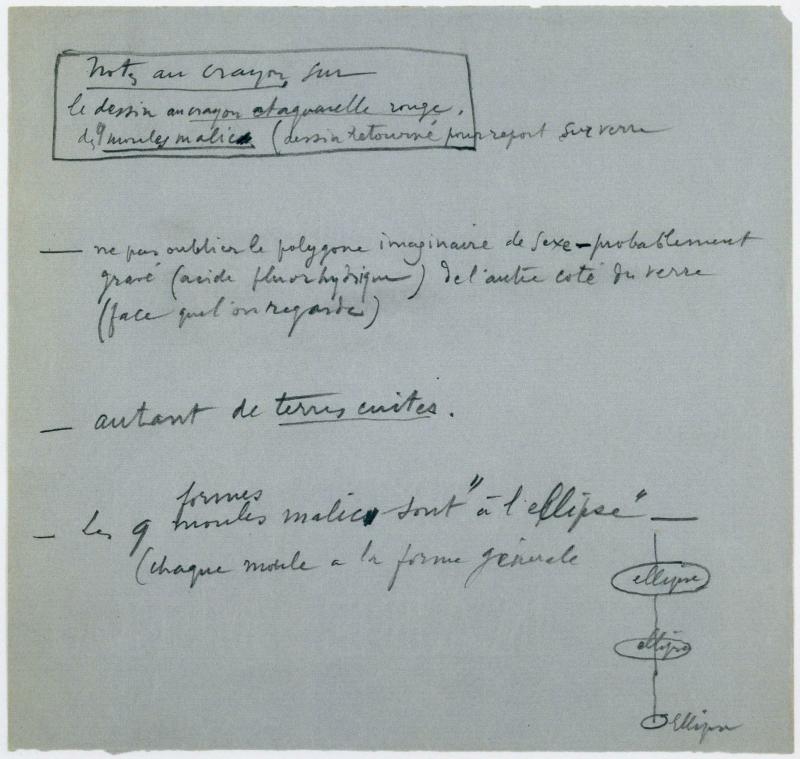 Notes au crayon, sur
le dessin au crayon et aquarelle rouge,
des 9 moules malic (dessin retourné pour report sur verre
— ne pas oublier le polygone imaginaire de sexe — probablement
gravé (acide fluorhydrique) de l'autre coté du verre
(face que l'on regarde)
— autant de terres cuites.
formes
— les 9 moules malic sont "à l'ellipse" —
(chaque moule a la forme générale
ellipse
ellipse
ellipse